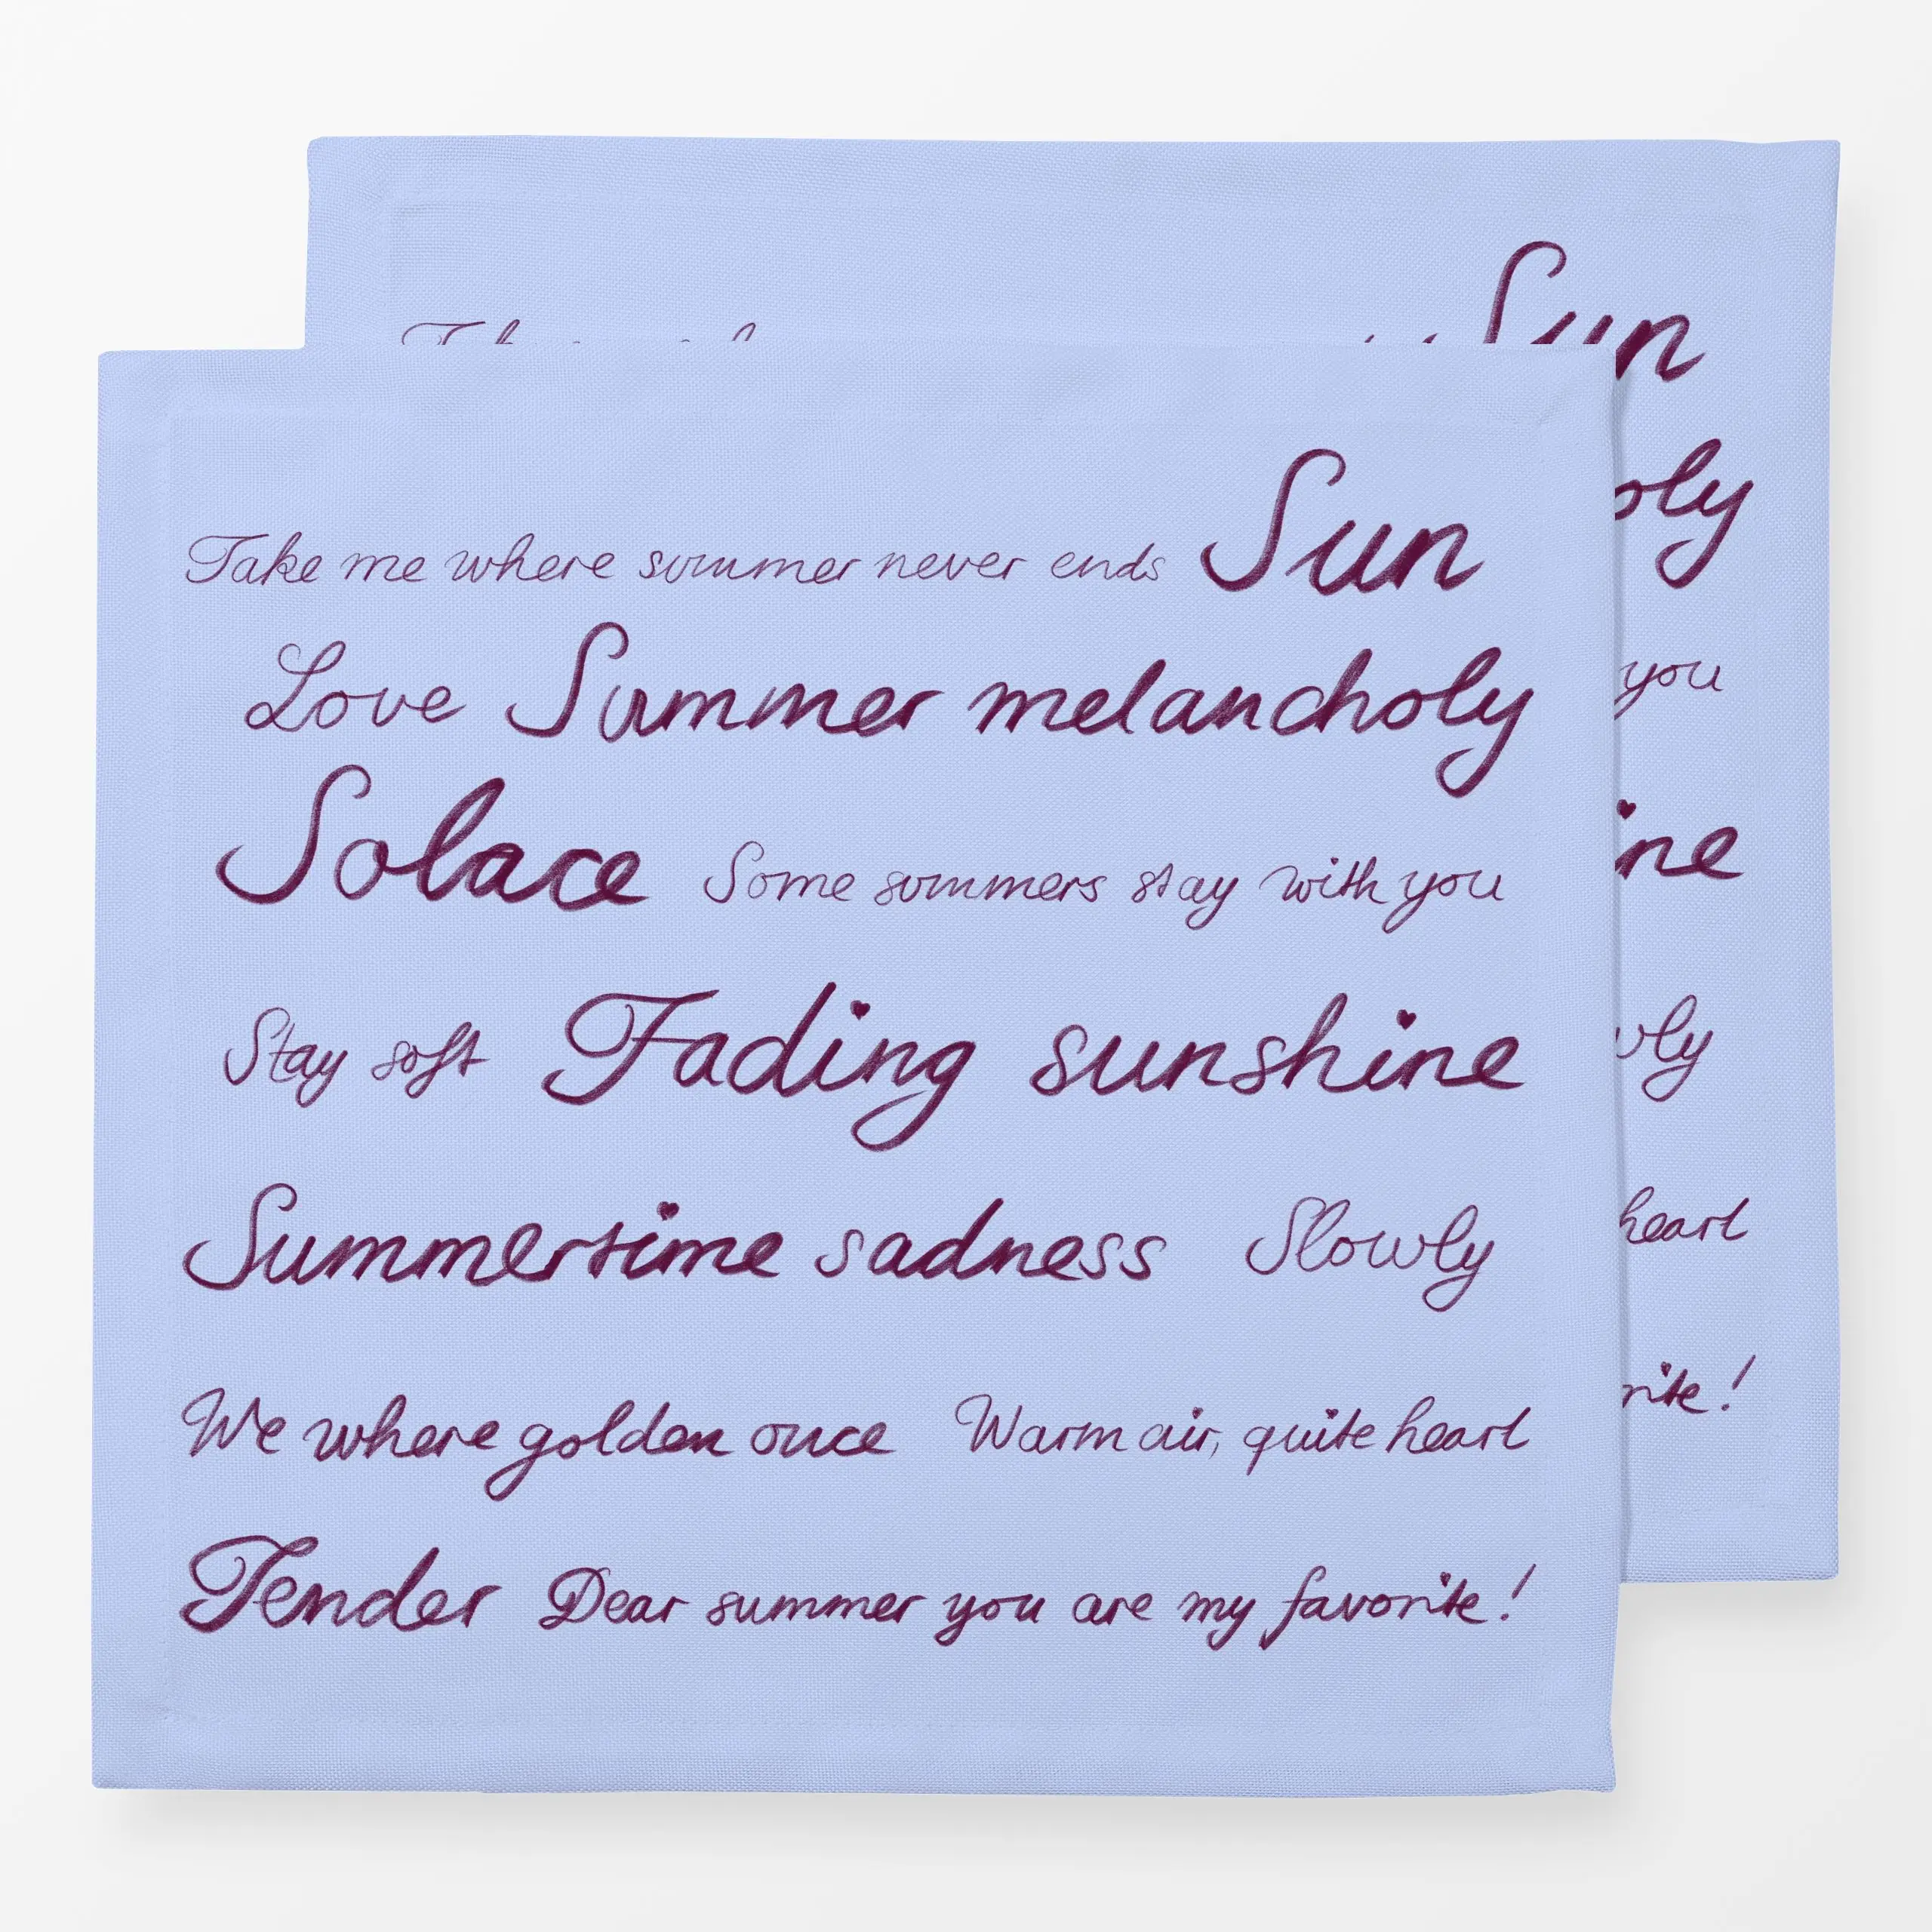 Take me where summer never ends Sun
Love Summer melancholy
Solace Some summers stay with you
Stay soft Fading sunshine
Summertime sadness Slowly
We where golden once Warm air, quite heart
Tender Dear summer you are my favorite!
Sun
oly
you
ine
wly
heart
rite!